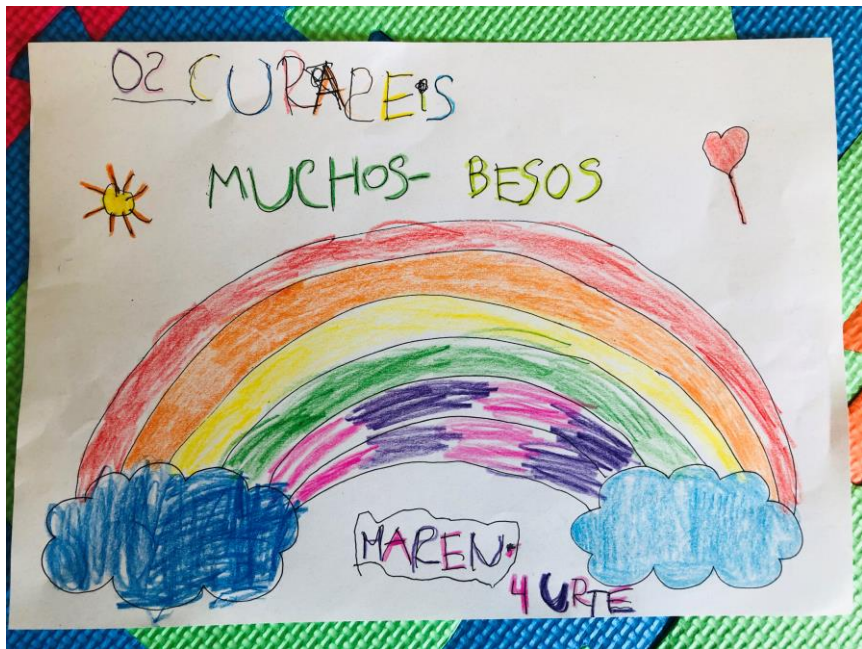 OS CURAREIS
MUCHOS- BESOS
MAREN.
4 URTE